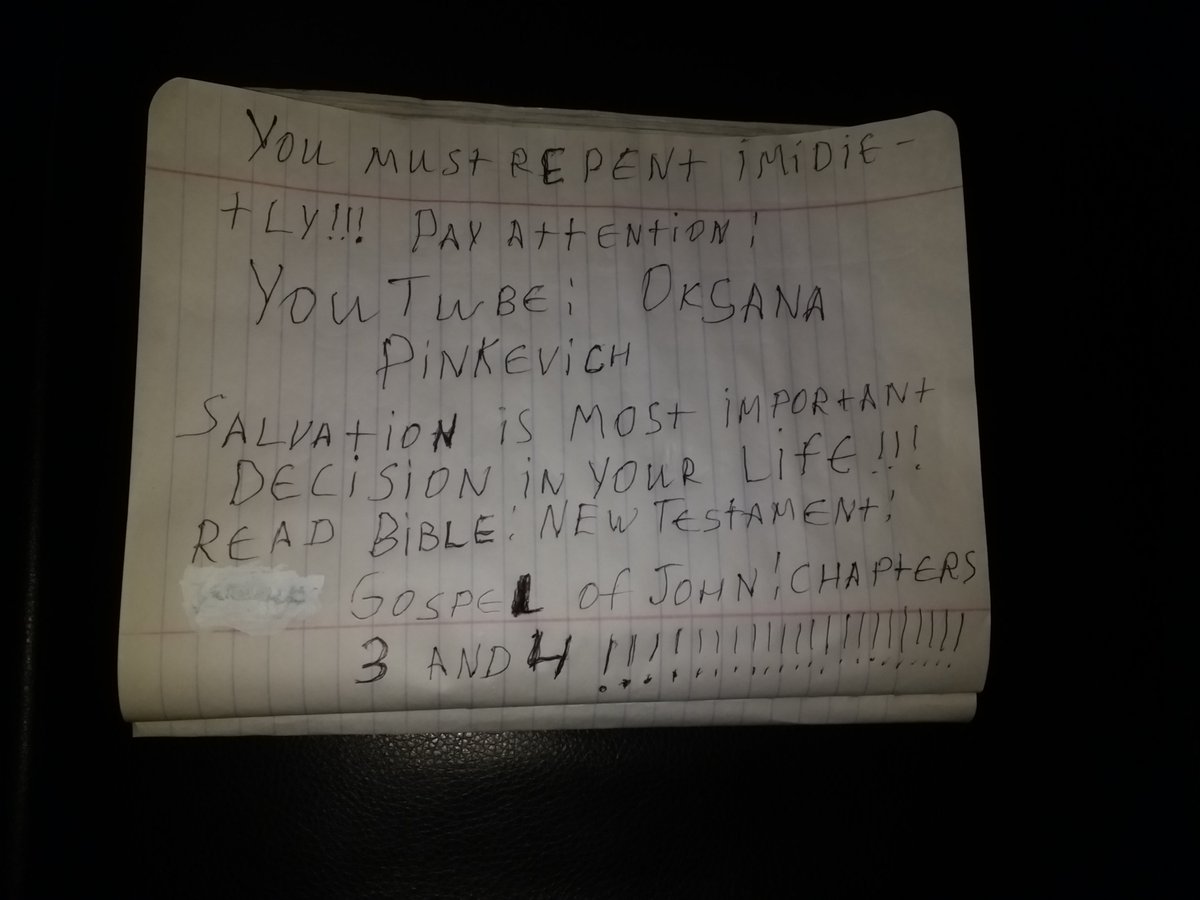 YOU MUST REPENT iMiDiE-
tLY!!! PAY AttENtiON!
YOUTUBE: OKSANA
PiNKEViCH
SALVAtiON iS MOSt iMPORtANt
DECiSiON iN YOUR LifE!!!
READ BiBLE: NEW TEStAMENt:
GOSPEL Of JOHN: CHAPtERS
3 AND 4 !!!!!!!!!!!!!!!!!!!!!